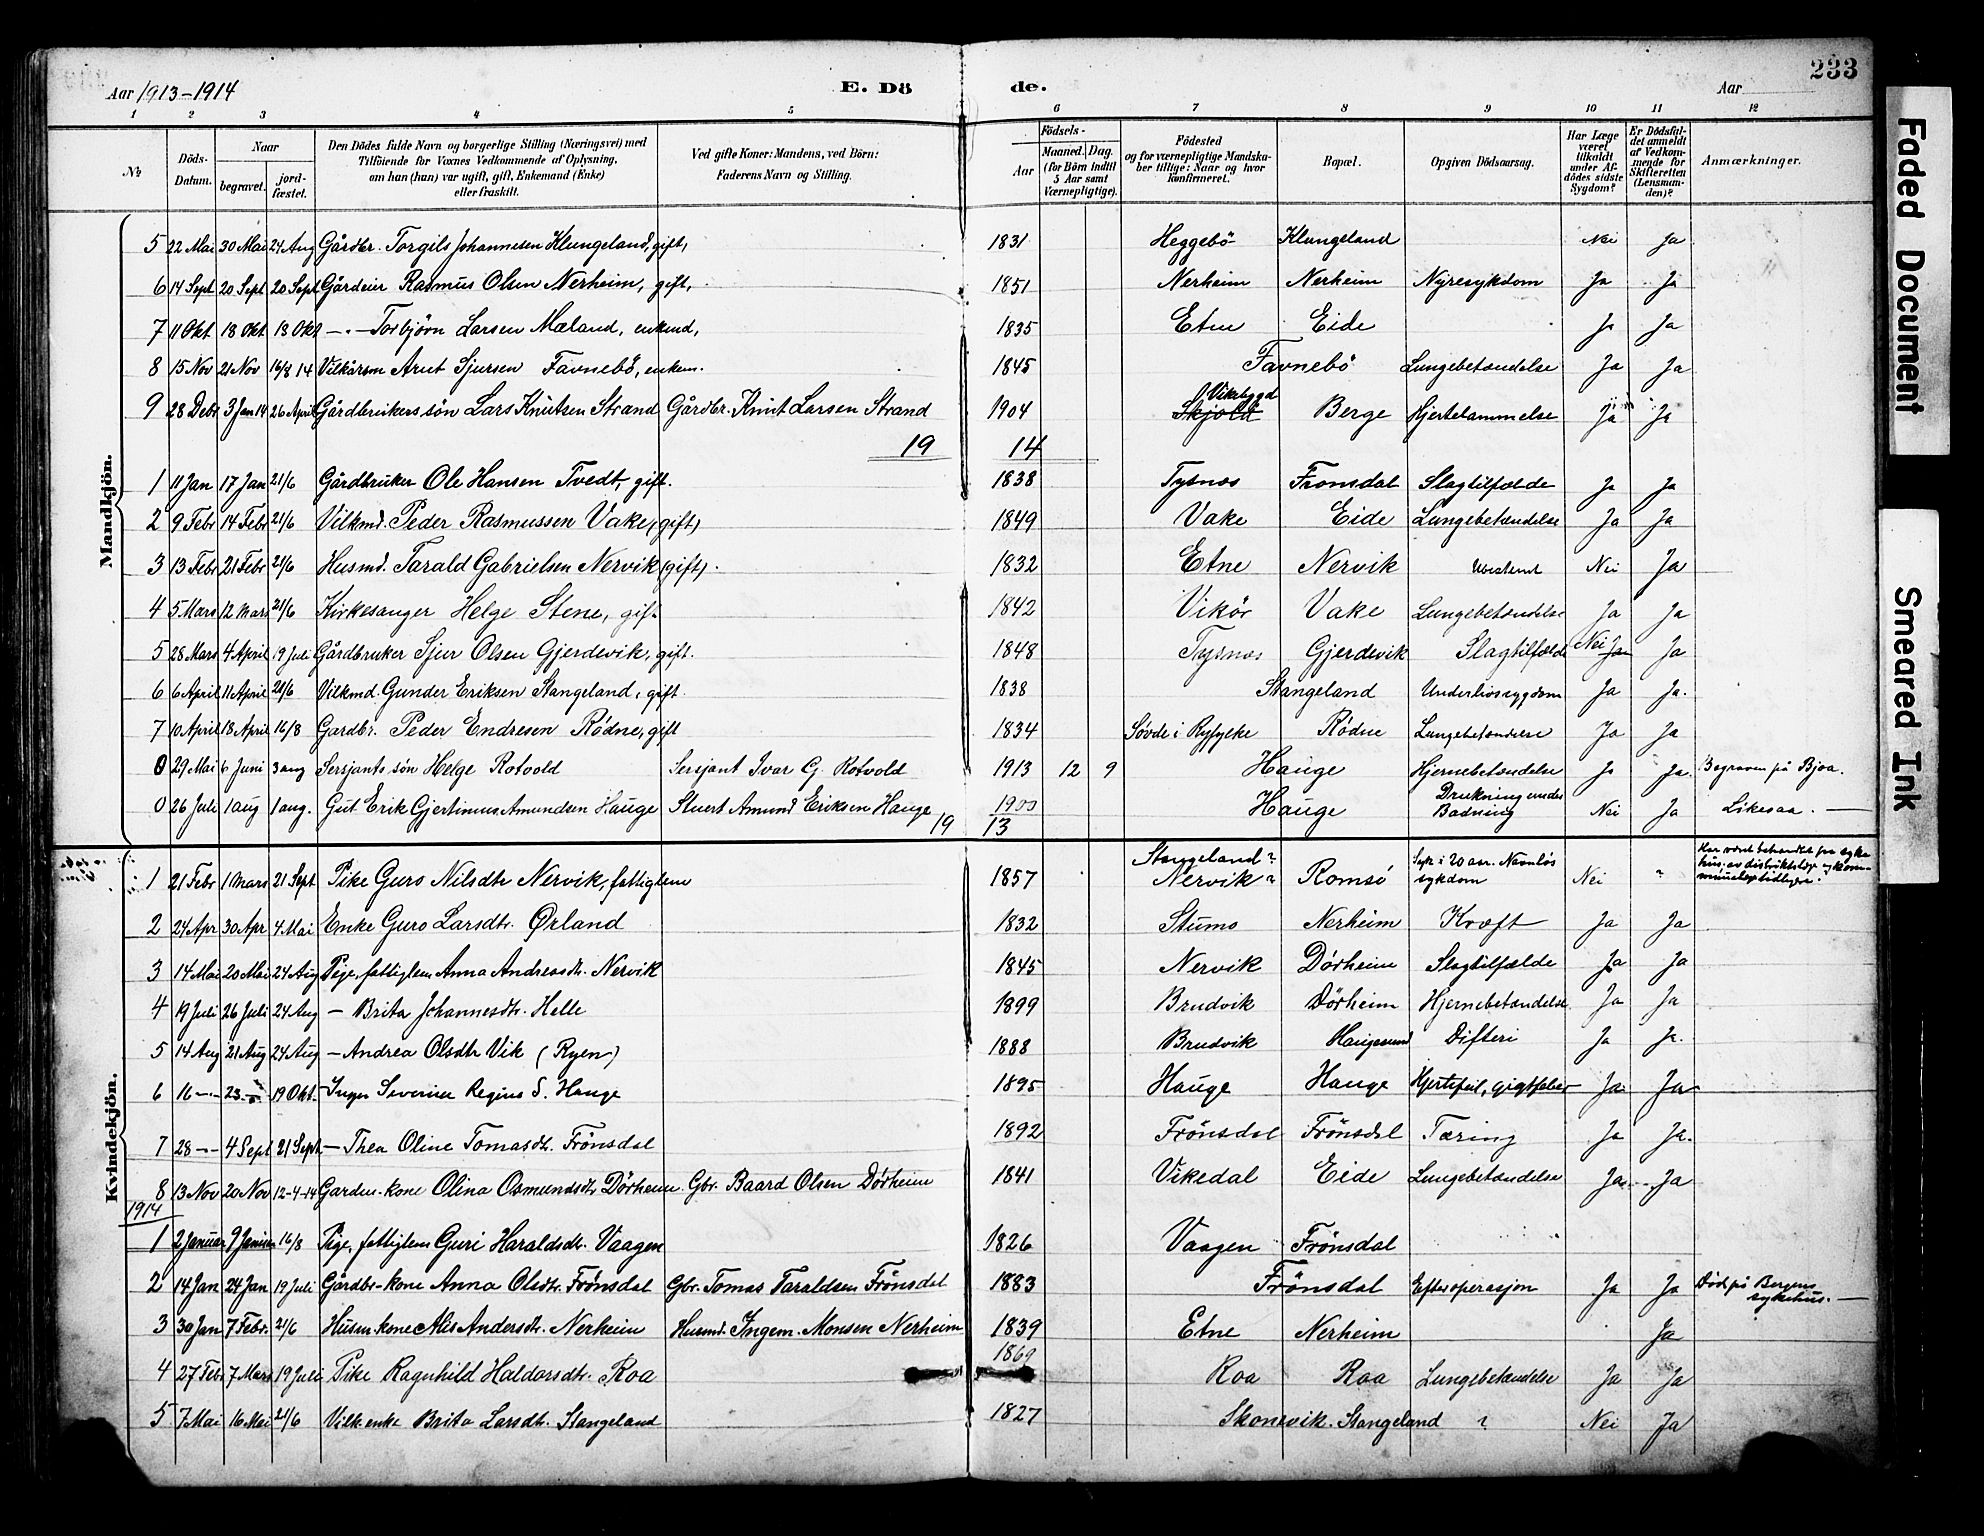 Aar 1913-1914 E. Dö de. Aar 233
1 2 3 4 5 6 7 8 9 10 11 12
No Döds-Datum. Naar begravet. jordfæstet. Den Dödes fulde Navn og borgerlige Stilling (Næringsvei) med Tilföiende for Voxnes Vedkommende af Oplysning, om han (hun) var ugift, gift, Enkemand (Enke) eller fraskilt. Ved gifte Koner: Mandens, ved Börn: Faderens Navn og Stilling. Födsels- Aar Maaned. Dag. (for Börn indtil 5 Aar samt Værnepligtige). Födested og for værnepligtige Mandskaber tillige: Naar og hvor konfirmeret. Bopæl. Opgiven Dödsaarsag. Har Læge været tilkaldt under Afdödes sidste Sygdom? Er Dödsfaldet anmeldt af Vedkommende for Skifteretten (Lensmanden)? Anmærkninger.
Mandkjön.
5 22 Mai 30 Mai 24 Aug Gårdbr. Torgils Johannesen Klungeland, gift, 1831 Heggebö Klungeland Nei Ja
6 14 Sept 20 Sept 20 Sept Gårdeier Rasmus Olsen Nerheim, gift, 1851 Nerheim Nerheim Nyresykdom Ja Ja
7 11 Okt 18 Okt 18 Okt -"- Torbjörn Larsen Mæland, enkmd, 1835 Etne Eide Ja Ja
8 15 Nov 21 Nov 16/8 14 Vilkårsm Arnt Sjursen Favnebö, enkem. 1845 Favnebö Lungebetændelse Ja Ja
9 28 Debr 3 Jan 14 26 April Gårdbrukers sön Lars Knutsen Strand Gårdbr. Knut Larsen Strand 1904 Vikebygd Skjold Berge Hjertelammelse Ja Ja
19 14
1 11 Jan 17 Jan 21/6 Gårdbruker Ole Hansen Tvedt, gift. 1838 Tysnæs Fronsdal Slagtilfælde Ja Ja
2 9 Febr 14 Febr 21/6 Vilkmd. Peder Rasmussen Vake, (gift) 1849 Vake Eide Lungebetændelse Ja Ja
3 13 Febr 21 Febr 21/6 Husmd. Tarald Gabrielsen Nervik (gift). 1832 Etne Nervik Ubestemt Nei Ja
4 5 Mars 12 Mars 21/6 Kirkesanger Helge Stene, gift. 1842 Vikör Vake Lungebetændelse Ja Ja
5 28 Mars 4 April 19 Juli Gårdbruker Sjur Olsen Gjerdevik, gift. 1848 Tysnæs Gjerdevik Slagtilfælde Nei Ja Ja
6 6 April 11 April 21/6 Vilkmd. Gunder Eriksen Stangeland, gift 1838 Stangeland Underlivssygdom Ja Ja.
7 10 April 18 April 16/8 Gardbr. Peder Endresen Rödne, gift 1834 Søvde i Ryfylke Rödne Lungebetændelse Ja Ja
0 29 Mai 6 Juni 3 aug Sersjants sön Helge Rotvold Sersjant Ivar G. Rotvold 1913 12 9 Hauge Hjernebetændelse Ja Ja. Begraven på Bjoa.
0 26 Juli 1 aug 1 aug. Gut Erik Gjertinius Amundsen Hauge Stuert Amund Eriksen Hauge 1900 Hauge Drukning under Badning Nei Ja Likesaa. —
19 13
Kvindekjön.
1 21 Febr 1 Mars 21 Sept Pike Guro Nilsdtr Nervik, fattiglem 1857 Stangeland? Nervik? Romsö Syk i 20 aar. Navnløs sykdom Nei ? Har været behandlet paa sykehus av distriktslæge
2 24 Apr 30 Apr 4 Mai Enke Guro Larsdtr. Ørland 1832 Stumo Nerheim Kræft Ja Ja
3 14 Mai 20 Mai 24 Aug Pige, fattiglem Anna Andreasdtr. Nervik 1845 Nervik Dörheim Slagtilfælde Ja Ja
4 19 Juli 26 Juli 24 Aug — Brita Johannesdtr. Helle 1899 Brudvik Dörheim Hjernebetændelse Ja Ja
5 14 Aug 21 Aug 24 Aug — Andrea Olsdtr Vik (Ryen) 1888 Brudvik Haugesund Difteri Ja Ja.
6 16 -"- 23 -"- 19 Okt. — Inger Severine Regine S. Hauge 1895 Hauge Hauge Hjertefeil, gigtfeber Ja Ja
7 28 -"- 4 Sept 21 Sept — Thea Oline Tomasdtr. Frönsdal 1892 Frönsdal Frönsdal Tæring Ja Ja.
8 13 Nov 20 Nov 12-4-14 Gardm.-kone Olina Osmundsdtr Dörheim Gbr. Baard Olsen Dörheim 1841 Vikedal Eide Lungebetændelse Ja Ja
1914
1 2 Januar 9 Januar 16/8 Pige, fattiglem Guri Haraldsdtr. Vaagen 1826 Vaagen Frönsdal
2 14 Jan 24 Jan 19 Juli Gårdbr-kone Anna Olsdtr. Frönsdal Gbr. Tomas Taraldsen Frönsdal 1883 Frönsdal Efter operasjon Ja Ja Död på Bergens sykehus. —
3 30 Jan 7 Febr. 21/6 Husm.kone Alis Andersdtr. Nerheim Husmd. Ingem. Monsen Nerheim 1839 Etne Nerheim Ja
4 27 Feb 7 Mars 19 Juli Pike Ragnhild Haldorsdtr. Roa 1869 Roa Roa Lungebetændelse Ja Ja
5 7 Mai 16 Mai 21/6 Vilk enke Brita Larsdtr. Stangeland 1827 Skonevik. Stangeland ? Nei Ja
Faded Document
Smeared Ink